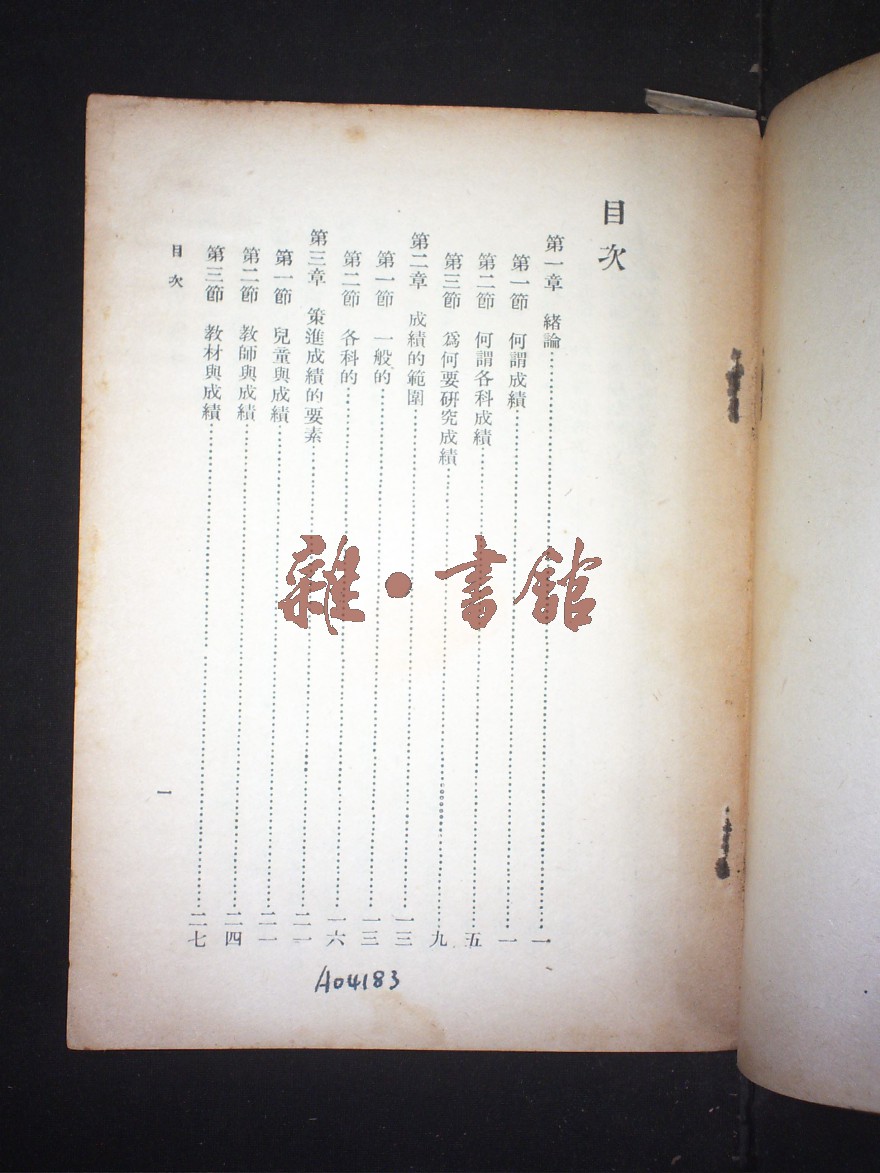 目次
第一章 緒論……一
第一節 何謂成績……一
第二節 何謂各科成績……五
第三節 爲何要研究成績……九
第二章 成績的範圍……一三
第一節 一般的……一三
第二節 各科的……一六
第三章 策進成績的要素……二一
第一節 兒童與成績……二一
第二節 教師與成績……二四
第三節 教材與成績……二七
目次
一
A04183
雜·書館